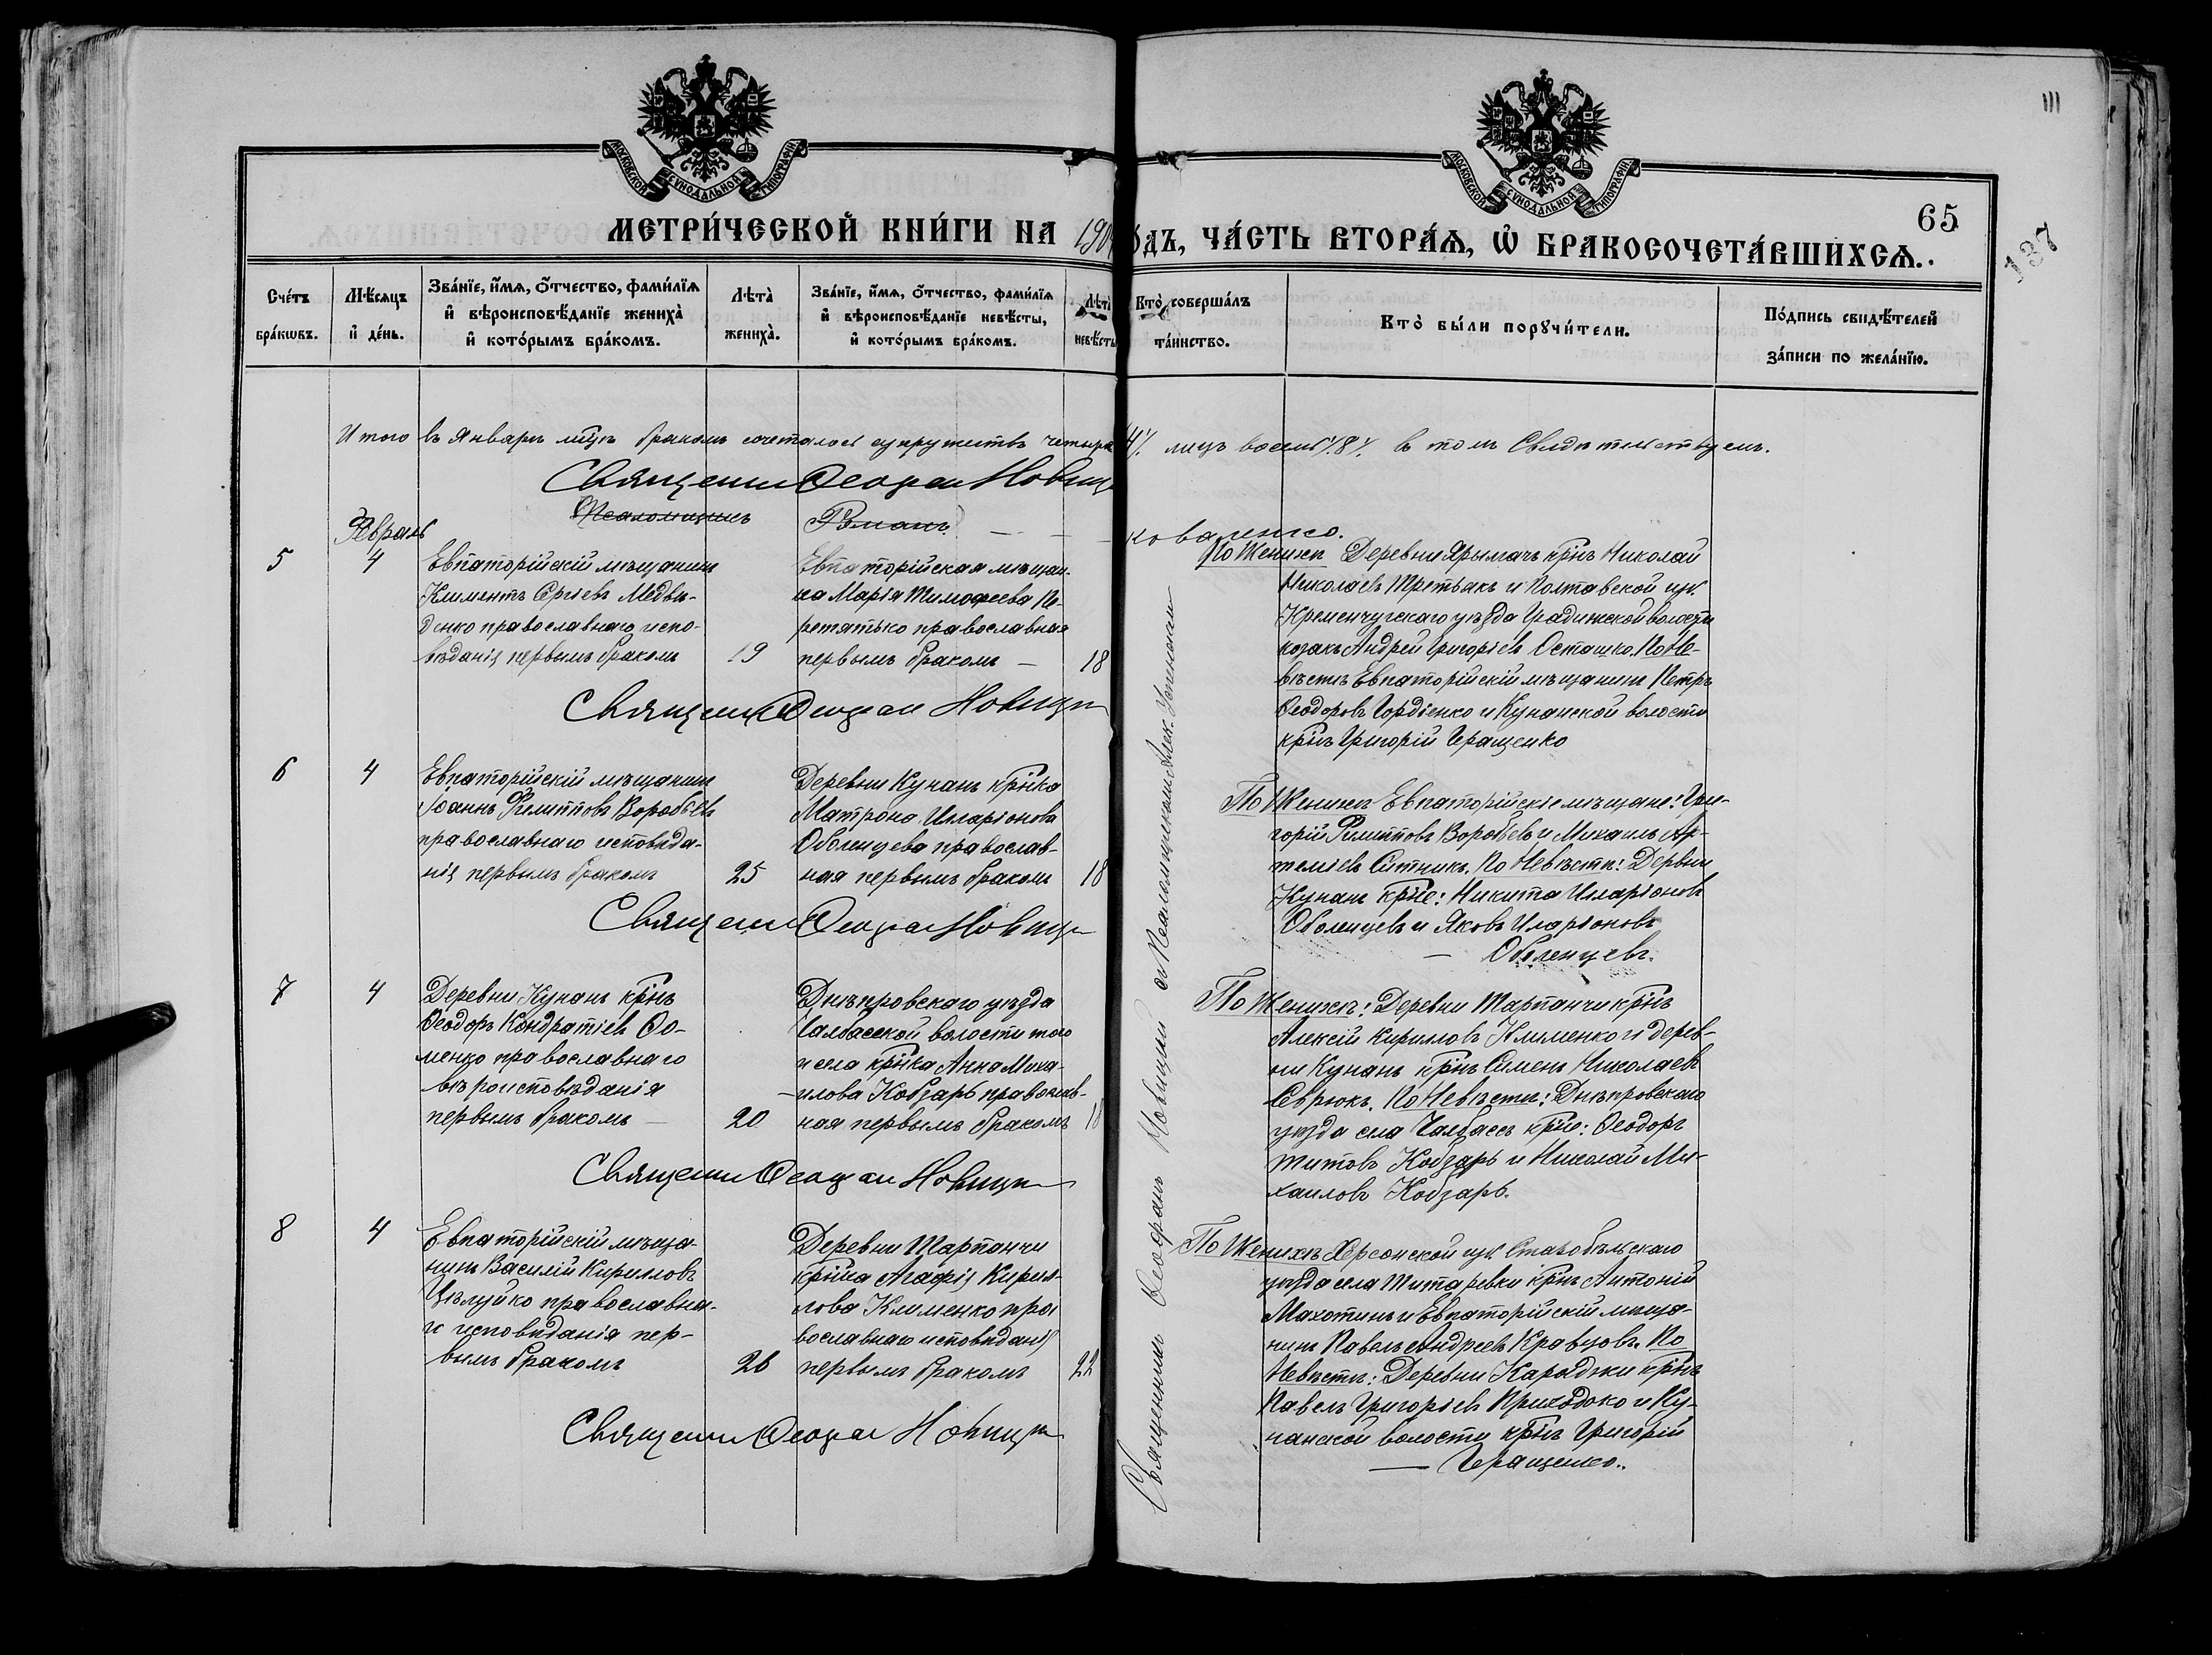 111
МОСКОВСКОЙ СУНОДАЛЬНОЙ ТИПОГРАФІИ
МОСКОВСКОЙ СУНОДАЛЬНОЙ ТИПОГРАФІИ
65
137
МЕТРИ́ЧЕСКОЙ КНИ́ГИ НА 190 ОДЪ, ЧА́СТЬ ВТОРА́Ѧ, Ѡ҆ БРАКОСОЧЕТА́ВШИХСѦ.
Сче́тъ бра́кѡвъ.
Мѣ́сѧцъ и҆ де́нь.
Зва́нїе, и҆́мѧ, ѻ҆́тчество, фами́лїѧ и҆ вѣроисповѣ́данїе жениха̀ и҆ кото́рымъ бра́комъ.
Лѣта̀ жениха̀.
Зва́нїе, и҆́мѧ, ѻ҆́тчество, фами́лїѧ и҆ вѣроисповѣ́данїе невѣ́сты, и҆ кото́рымъ бра́комъ.
Лѣта̀ невѣ́сты
Кто̀ соверша́лъ та́инство.
Кто̀ бы́ли порꙋчи́тели.
По́дпись свидѣ́телей за́писи по жела́нїю.
Итого въ Январѣ м̃цѣ бракомъ сочеталось супружествъ четыре /4/. лицъ восемь /8/. въ томъ Свидѣтельствуемъ.
Священникъ Ѳеофанъ Новицкій
Псаломщикъ Романъ коваленко.
Февраль
5
4
Евпаторійскій мѣщанинъ
Климентъ Сергіевъ Медвѣ-
денко православнаго испо-
вѣданія первымъ бракомъ
19
Евпаторійская мѣщан-
ка Марія Тимофеева Пе-
ретятько православная
первымъ бракомъ —
18
По Женихѣ Деревни Ярылгачъ кр̃нъ Николай
Николаевъ Третьякъ и Полтавской губ.
Кременчугскаго уѣзда Градижской волости
козакъ Андрей Григоріевъ Осташко. По Не-
вѣстѣ Евпаторійскій мѣщанинъ Петръ
Ѳеодоровъ Гордіенко и Кунанской волости
кр̃нъ Григорій Геращенко
Священникъ Ѳеофанъ Новицкій
6
4
Евпаторійскій мѣщанинъ
Іоаннъ Филипповъ Воробьевъ
православнаго исповѣда-
нія первымъ бракомъ
25
Деревни Кунанъ кр̃нка
Матрона Илларіонова
Оболенцева православ-
ная первымъ бракомъ
18
По Женихѣ Евпаторійскіе мѣщане: Гри-
горій Филипповъ Воробьевъ и Михаилъ Ар-
теміевъ Ситникъ. По Невѣстѣ: Деревни
Кунанъ кр̃не: Никита Илларіоновъ
Оболенцевъ и Яковъ Иларіоновъ
— Оболенцевъ.
Священникъ Ѳеофанъ Новицкій
7
4
Деревни Кунанъ кр̃нъ
Ѳеодоръ Кондратіевъ Ѳо-
менко православнаго
вѣроисповѣданія
первымъ бракомъ —
20
Днѣпровскаго уѣзда
Чалбасской волости того
и села кр̃нка Анна Миха-
илова Кобзарь православ-
ная первымъ бракомъ
18
По Женихѣ: Деревни Тарпанчи кр̃нъ
Алексій Кирилловъ Клименко и дерев-
ни Кунанъ кр̃нъ Сименъ Николаевъ
Севрюкъ. По Невѣстѣ: Днѣпровскаго
уѣзда села Чалбассъ кр̃не: Ѳеодоръ
Титовъ Кобзарь и Николай Ми-
хаиловъ Кобзарь.
Священникъ Ѳеофанъ Новицкій
8
4
Евпаторійскій мѣща-
нинъ Василій Кирилловъ
Цѣлуйко православна-
го исповѣданія пер-
вымъ бракомъ
26
Деревни Тарпанчи
кр̃нка Агафія Кирил-
лова Клименко пра-
вославнаго исповѣданія
первымъ бракомъ
22
По Женихѣ Херсонской губ. Старобѣльскаго
уѣзда села Титаревки кр̃нъ Антоній
Махотинъ и Евпаторійскій мѣща-
нинъ Павелъ Андреевъ Кравцовъ. По
Невѣстѣ: Деревни Караджи кр̃нъ
Павелъ Григоріевъ Приходько и Ку-
нанской волости кр̃нъ Григорій
— Геращенко.
Священникъ Ѳеофанъ Новицкій
Священникъ Ѳеофанъ Новицкій съ Псаломщикомъ Алек.